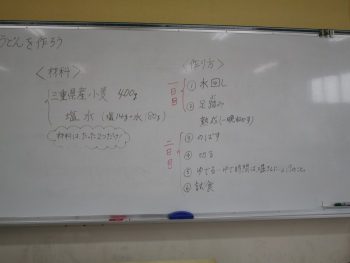 うどんを作ろう
<材料>
三重県産小麦 400g
塩水 (塩14g+水180g)
材料はたった2つだけ
<作り方>
一日目
① 水回し
② 足踏み
熟成(一晩ねかす)
二日目
③ のばす
④ 切る
⑤ ゆでる ゆで時間は
⑥ 試食